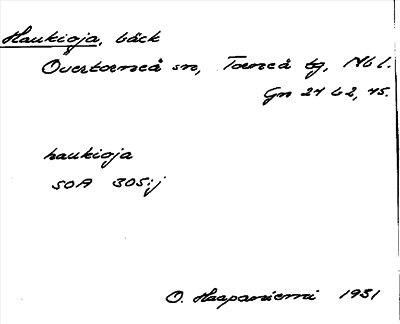 Haukioja, bäck
Övertorneå sn, Torneå tg, Nbl.
Gn 27 b 2, 75.
haukioja
SOA 305:j
O. Haapaniemi 1931